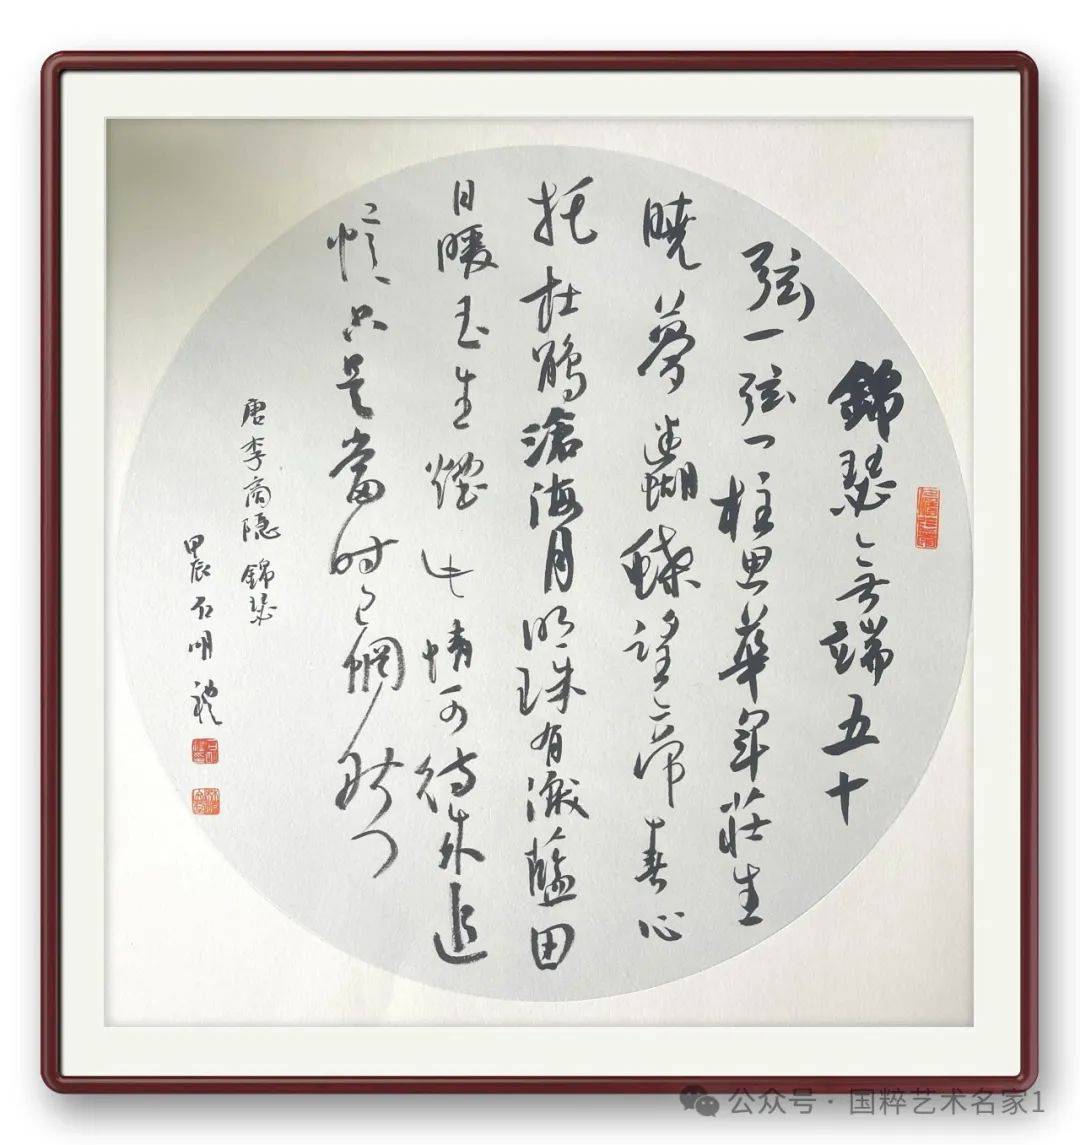 錦瑟無端五十
弦一弦一柱思華年莊生
曉夢迷蝴蝶望帝春心
托杜鵑滄海月明珠有淚藍田
日暖玉生煙此情可待成追
憶只是當時已惘然
唐李商隐錦瑟
甲辰石明礼
公众号 · 国粹艺术名家1